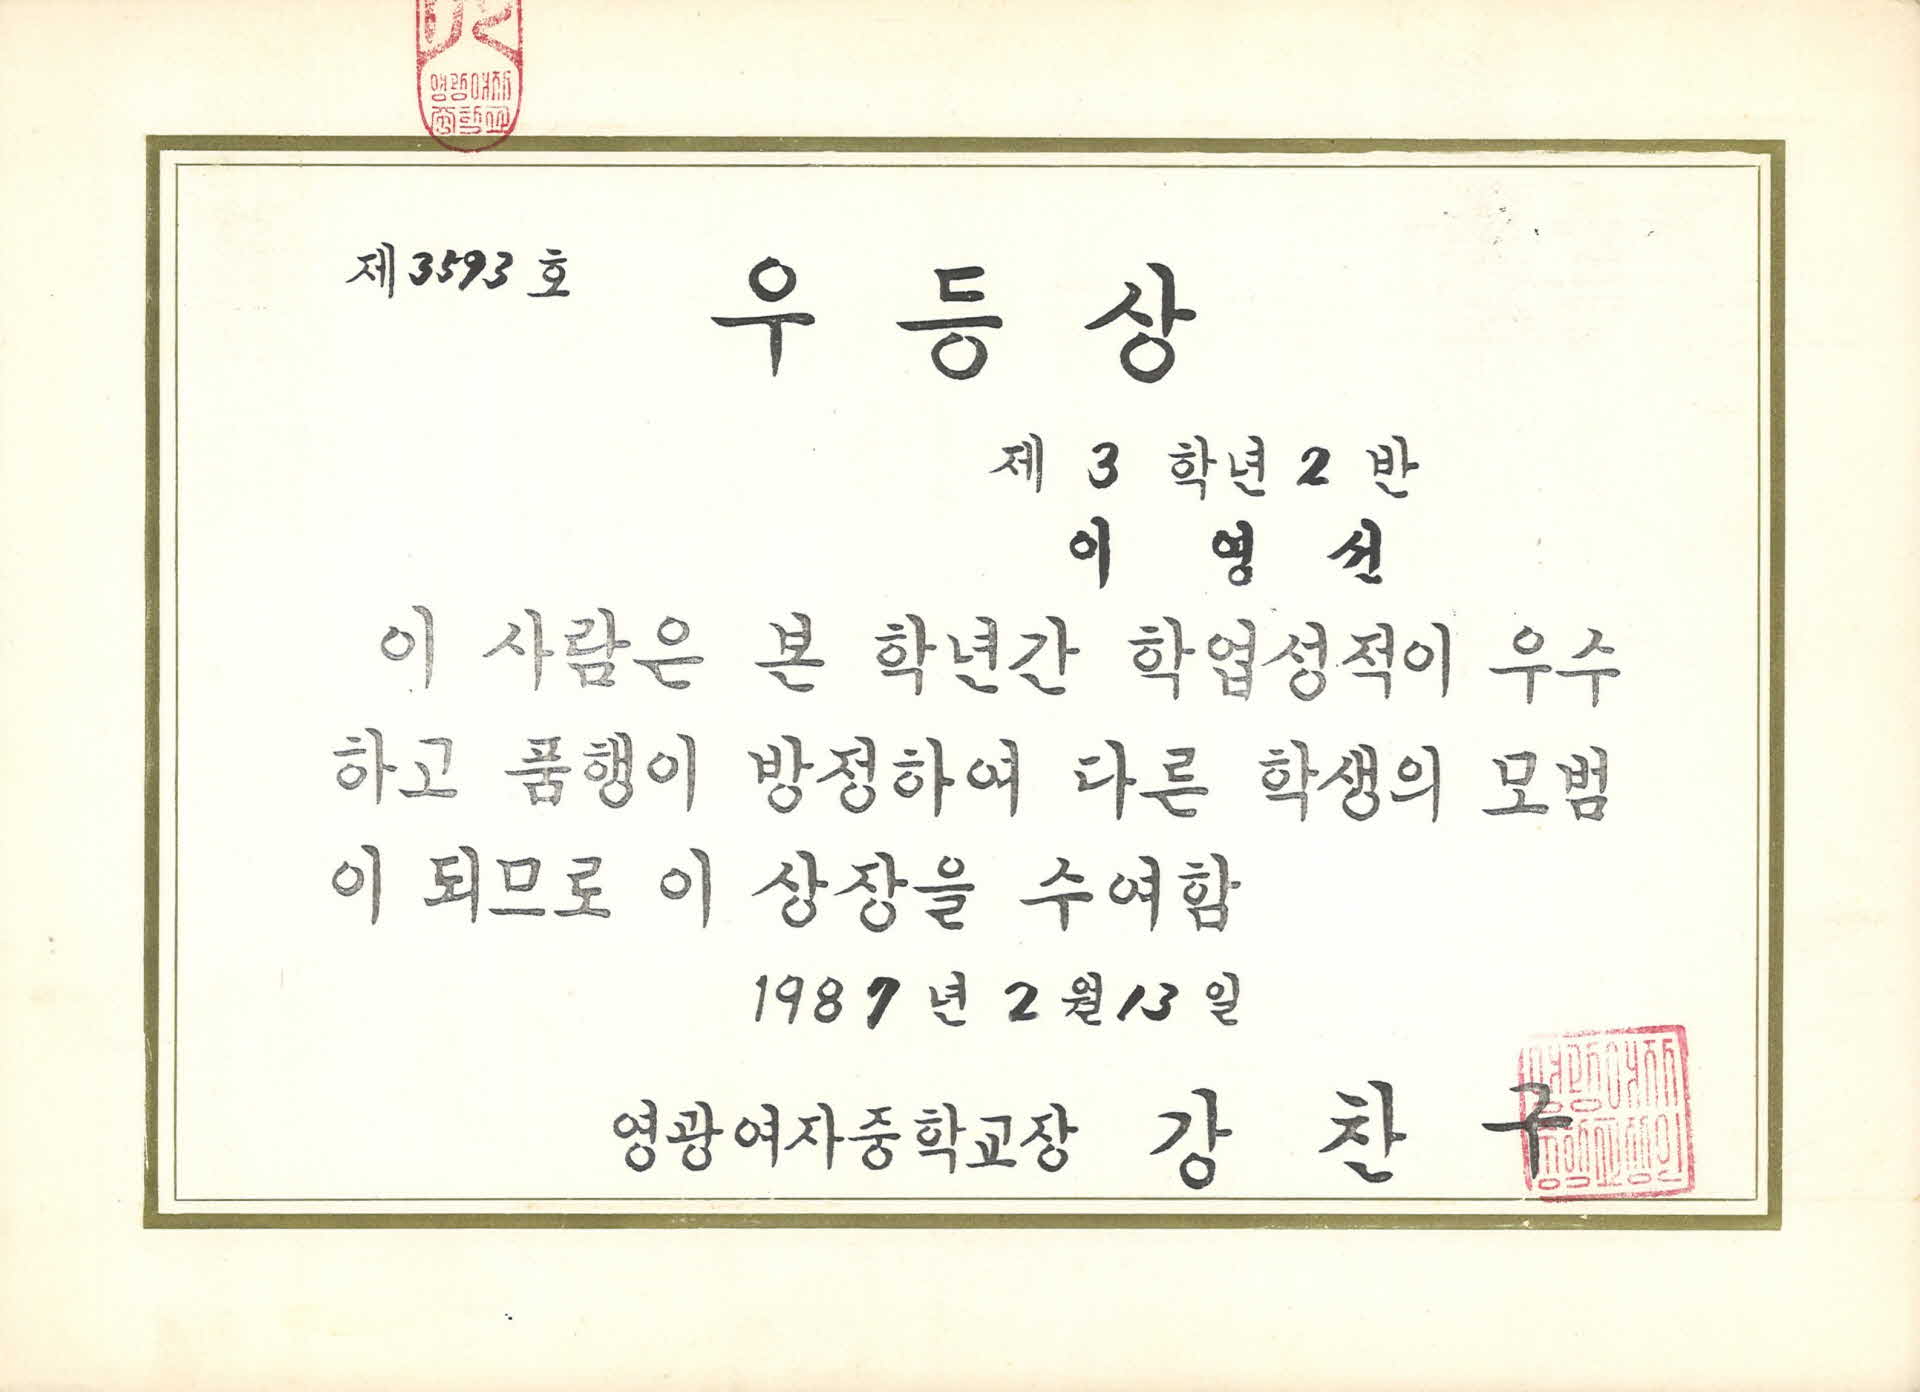 영광여자
중학교
제3593호
우등상
제 3 학년 2 반
이 영 선
이 사람은 본 학년간 학업성적이 우수
하고 품행이 방정하여 다른 학생의 모범
이 되므로 이 상장을 수여함
1987년 2월 13일
영광여자중학교장 강 찬 구
영광여자
중학교장인